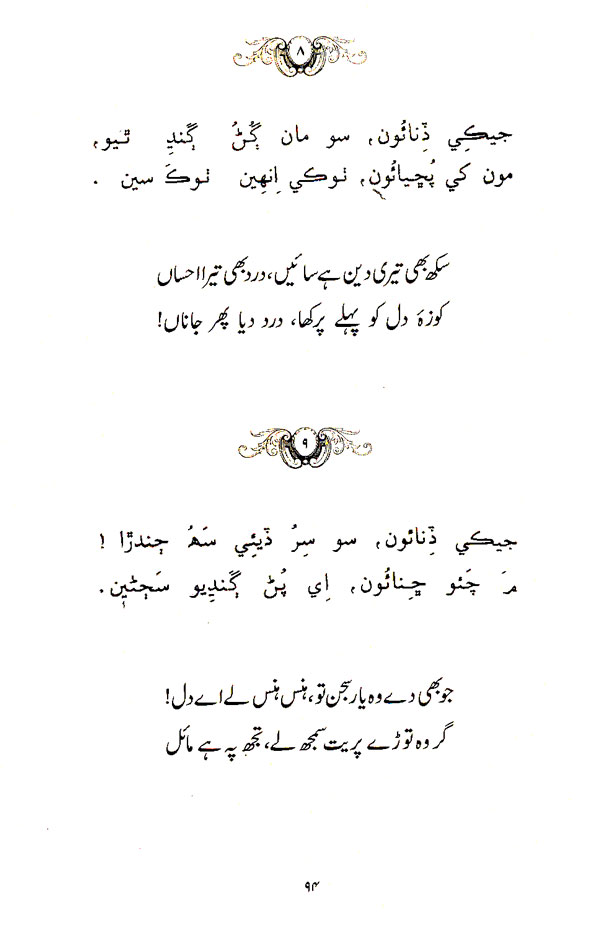 ۸
جيڪِي ڏِنائُون، سو مان ڳُڻُ ڳَنڍِ ٿيو،
مون کي پُڇيائُون، ٺوڪي اِنهِين ٺوڪَ سين .
سکھ بھی تیری دین ہے سائیں، درد بھی تیرا احساں
کوزۂ دل کو پہلے پرکھا، درد دیا پھر جاناں!
۹
جيڪي ڏِنائون، سو سِرُ ڏيئِي سَهُ جِندڙا !
مَ چَئو ڇِنائُون، اِي پُڻ ڳَنڍِيو سَڄَڻين.
جو بھی دے وہ یار سجن تو، ہنس ہنس لے اے دل!
گر وہ توڑے پریت سمجھ لے، تجھ پہ ہے مائل
۹۴